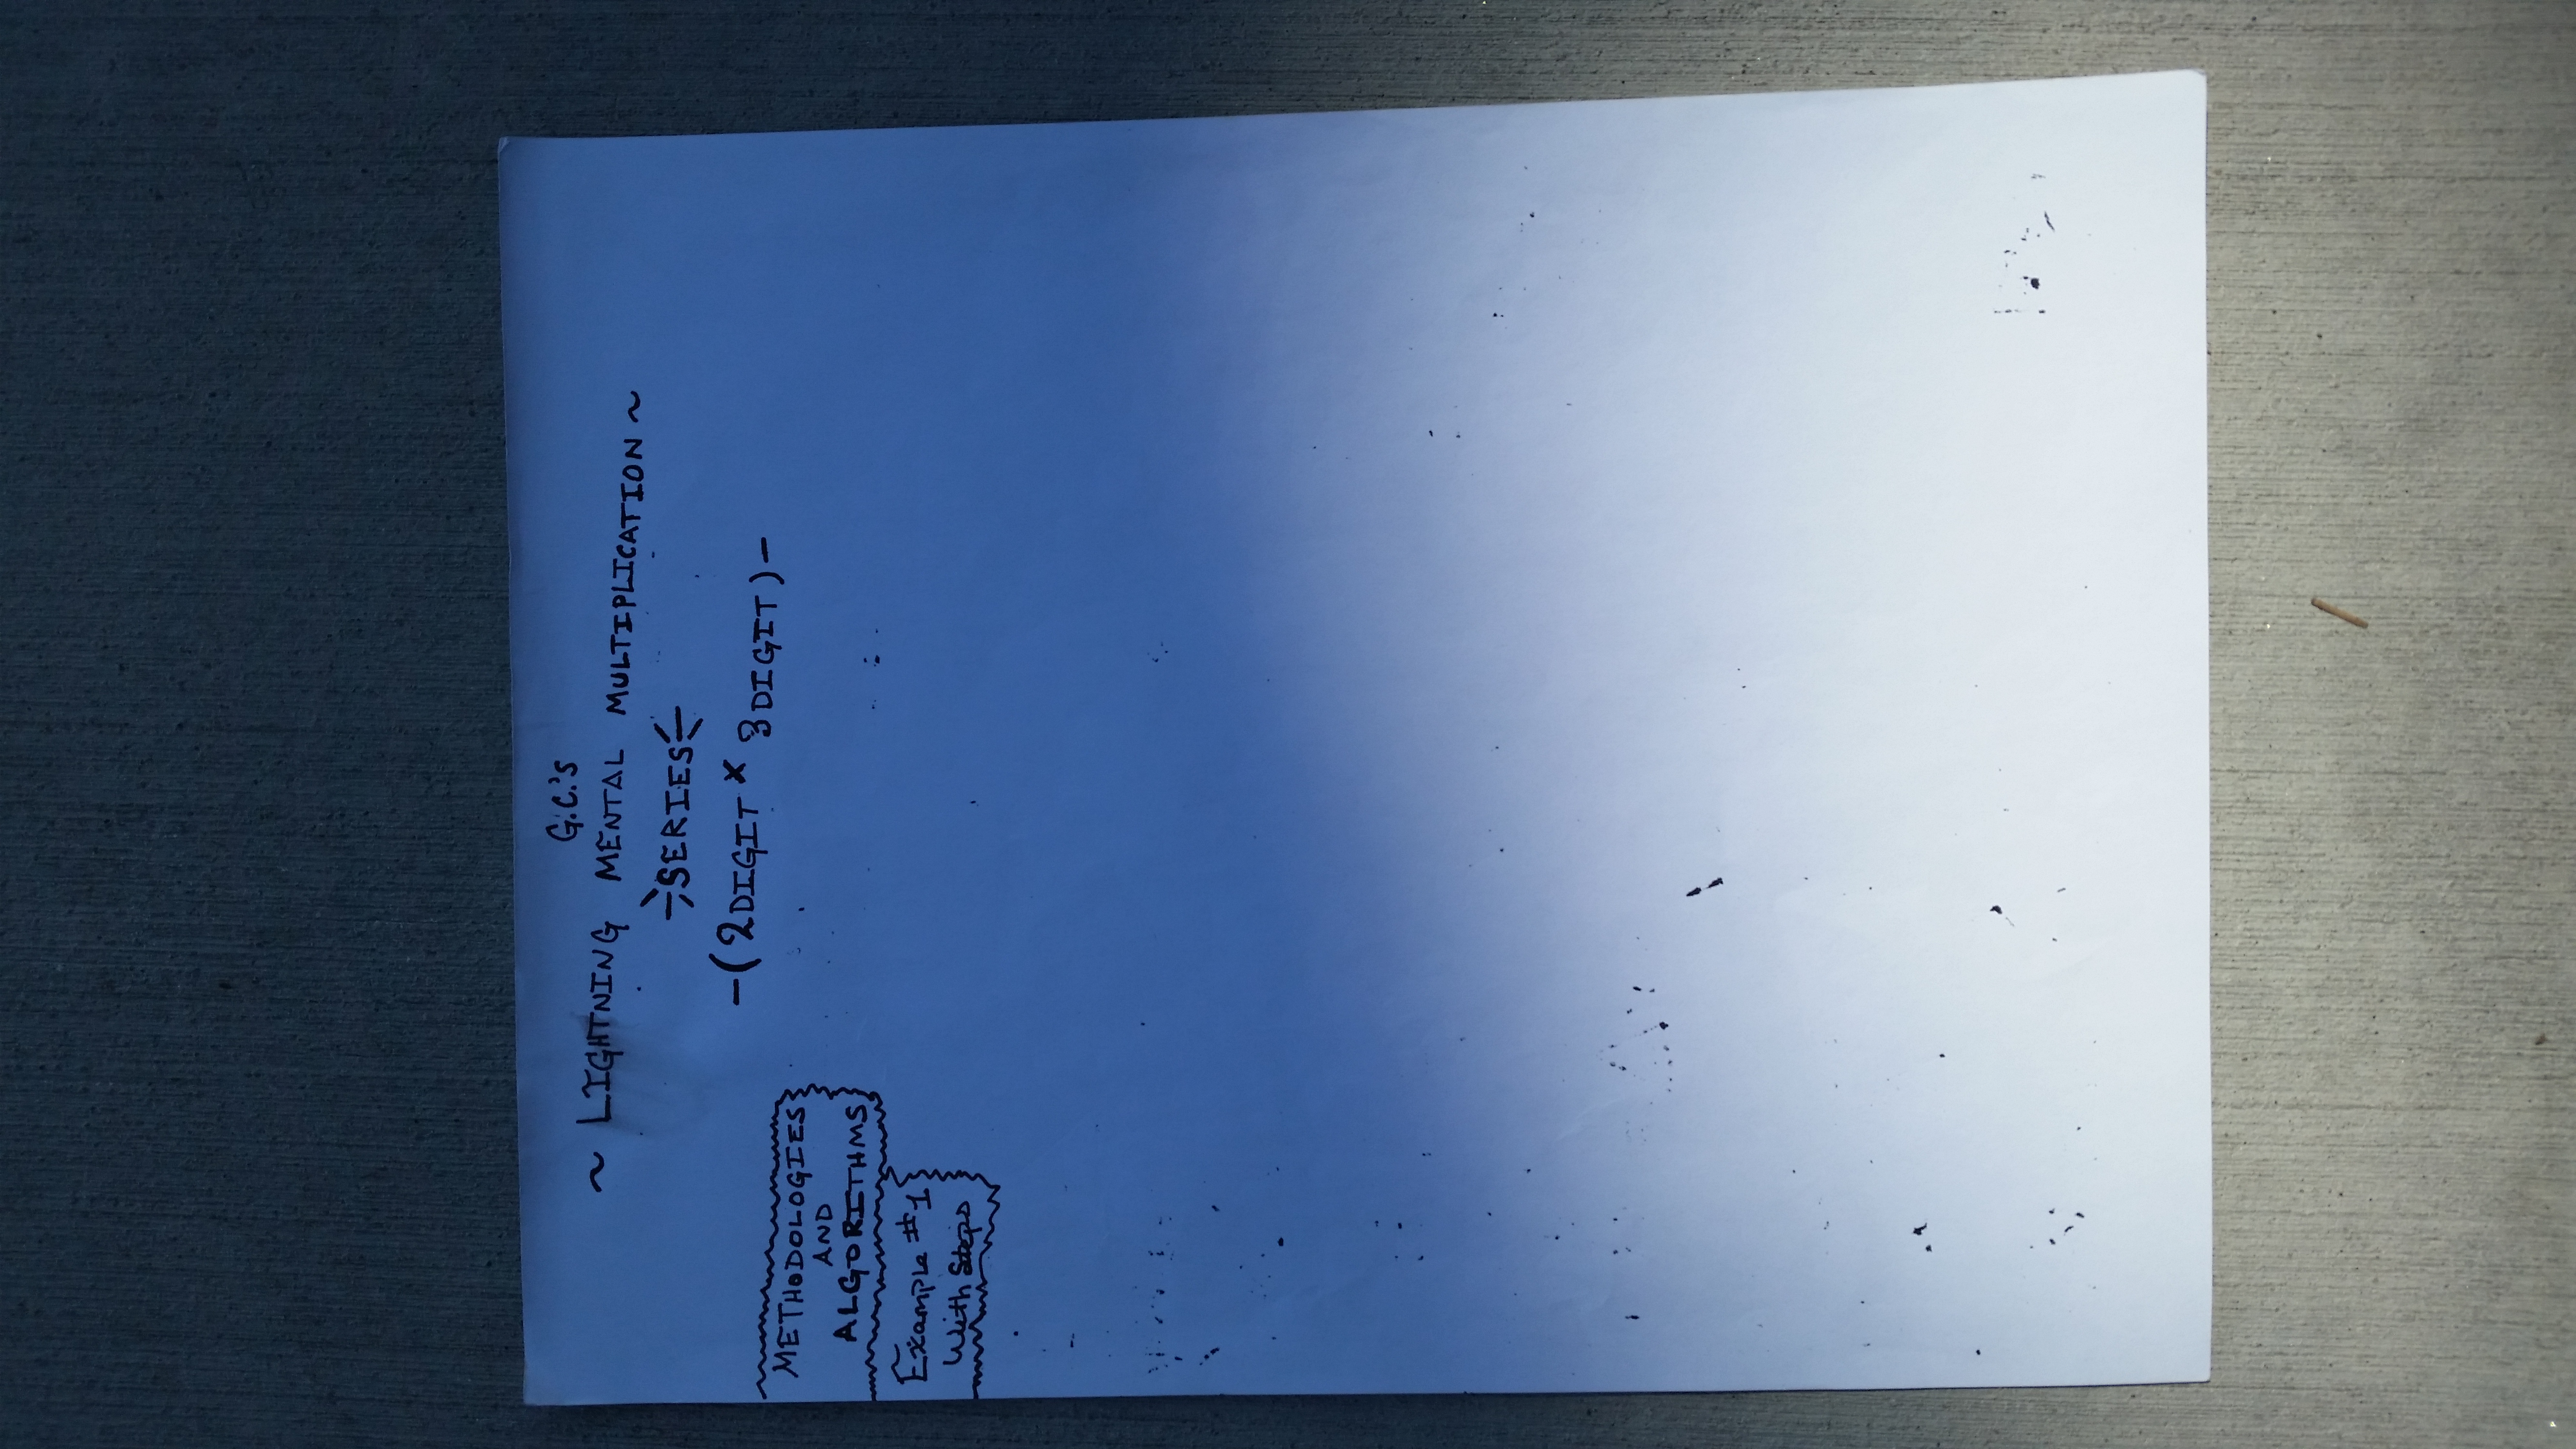 G.C.'s
~ LIGHTNING MENTAL MULTIPLICATION ~
SERIES
-(2DIGIT x 3DIGIT)-
METHODOLOGIES
AND
ALGORITHMS
Example #1
With Steps